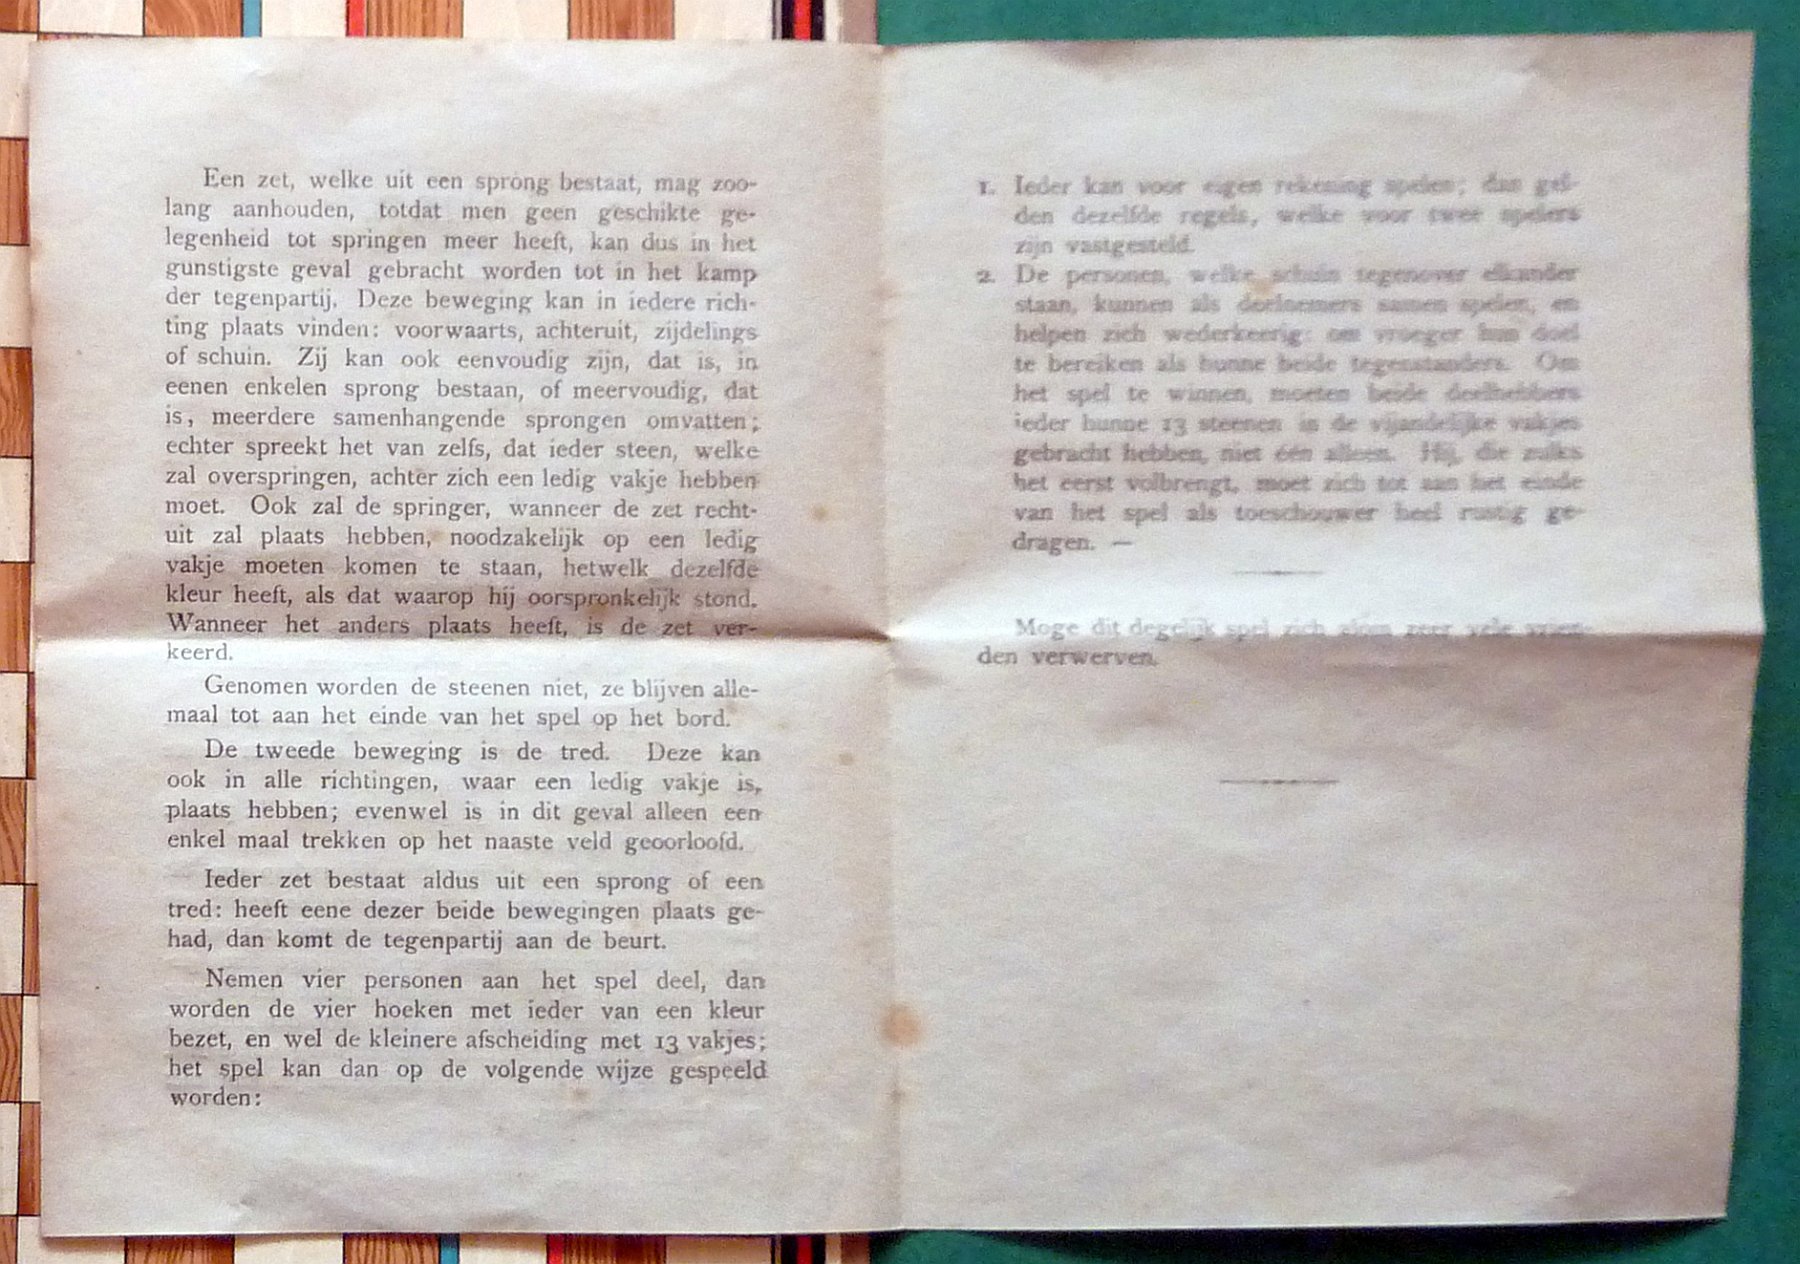 Een zet, welke uit een sprong bestaat, mag zoo-
lang aanhouden, totdat men geen geschikte ge-
legenheid tot springen meer heeft, kan dus in het
gunstigste geval gebracht worden tot in het kamp
der tegenpartij. Deze beweging kan in iedere rich-
ting plaats vinden: voorwaarts, achteruit, zijdelings
of schuin. Zij kan ook eenvoudig zijn, dat is, in
eenen enkelen sprong bestaan, of meervoudig, dat
is, meerdere samenhangende sprongen omvatten;
echter spreekt het van zelfs, dat ieder steen, welke
zal overspringen, achter zich een ledig vakje hebben
moet. Ook zal de springer, wanneer de zet recht-
uit zal plaats hebben, noodzakelijk op een ledig
vakje moeten komen te staan, hetwelk dezelfde
kleur heeft, als dat waarop hij oorspronkelijk stond.
Wanneer het anders plaats heeft, is de zet ver-
keerd.
Genomen worden de steenen niet, ze blijven alle-
maal tot aan het einde van het spel op het bord.
De tweede beweging is de tred. Deze kan
ook in alle richtingen, waar een ledig vakje is,
plaats hebben; evenwel is in dit geval alleen een
enkel maal trekken op het naaste veld geoorloofd.
Ieder zet bestaat aldus uit een sprong of een
tred: heeft eene dezer beide bewegingen plaats ge-
had, dan komt de tegenpartij aan de beurt.
Nemen vier personen aan het spel deel, dan
worden de vier hoeken met ieder van een kleur
bezet, en wel de kleinere afscheiding met 13 vakjes;
het spel kan dan op de volgende wijze gespeeld
worden:
1. Ieder kan voor eigen rekening spelen; dan gel-
den dezelfde regels, welke voor twee spelers
zijn vastgesteld.
2. De personen, welke schuin tegenover elkander
staan, kunnen als deelnemers samen spelen, en
helpen zich wederkeerig: om vroeger hun doel
te bereiken als hunne beide tegenstanders. Om
het spel te winnen, moeten beide deelhebbers
ieder hunne 13 steenen in de vijandelijke vakjes
gebracht hebben, niet één alleen. Hij, die zulks
het eerst volbrengt, moet zich tot aan het einde
van het spel als toeschouwer heel rustig ge-
dragen. —
Moge dit degelijk spel zich zeer vele vrien-
den verwerven.